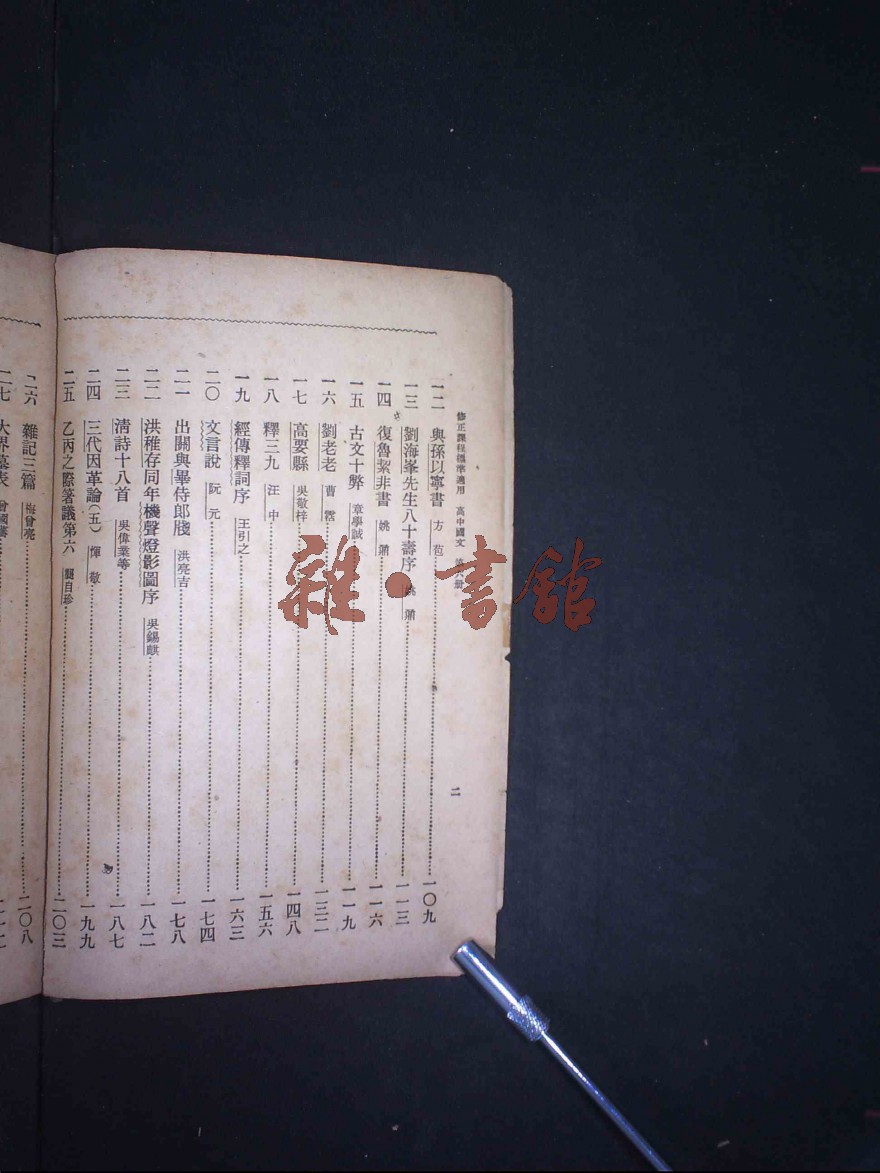 修正課程標準適用 高中國文 第六册
二
一二 與孫以寧書 方苞 一〇九
一三 劉海峯先生八十壽序 姚鼐 一一三
一四 復魯絜非書 姚鼐 一一六
一五 古文十弊 章學誠 一一九
一六 劉老老 曹霑 一三二
一七 高要縣 吳敬梓 一四八
一八 釋三九 汪中 一五六
一九 經傳釋詞序 王引之 一六三
二〇 文言說 阮元 一七四
二一 出關與畢侍郎牋 洪亮吉 一七八
二二 洪稚存同年機聲燈影圖序 吳錫麒 一八二
二三 清詩十八首 吳偉業等 一八七
二四 三代因革論(五) 惲敬 一九九
二五 乙丙之際箸議第六 龔自珍 二〇三
二六 雜記三篇 梅曾亮 二〇八
二七 大界墓表 曾國藩
雜·書館